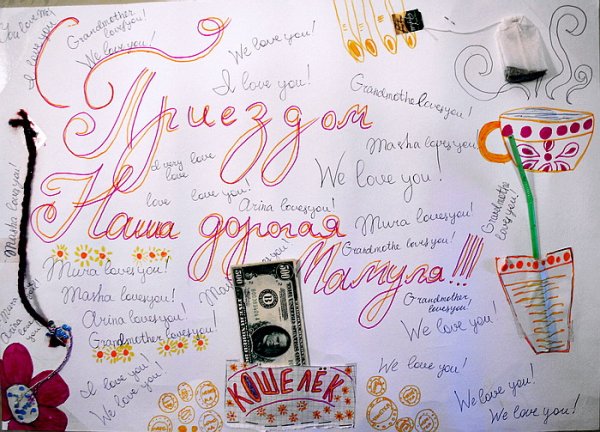 I love you!
Grandmother loves you!
We love you!
We love you!
I love you!
Grandmother loves you!
Приездом
Masha loves you
I very love
love
We love you!
love love you!
Arina loves you!
Наша дорогая
Mura loves you!
Grandmothe loves you!
Grandmothe loves you!
Masha loves you!
Мамуля!!!!
Mura loves you!
Masha loves you!
Arina loves you!
Grandmother loves you!
Grandmother, loves you!
We love you!
I love you!
We love you!
КОШЕЛЁК
We love you!
We love you!
We love you!